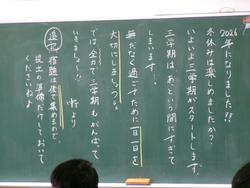 2026年になりました!!
冬休みは楽しめましたか?
いよいよ三学期がスタートします。
三学期は、あっという間にすぎて
しまいます。
無だなく過ごすために一日一日を
大切にしましょう。
では、全力で三学期もがんばって
いきましょう!!
より
追伸 宿題は後で集めるので、
提出の準備だけしておいて
くださいねっ